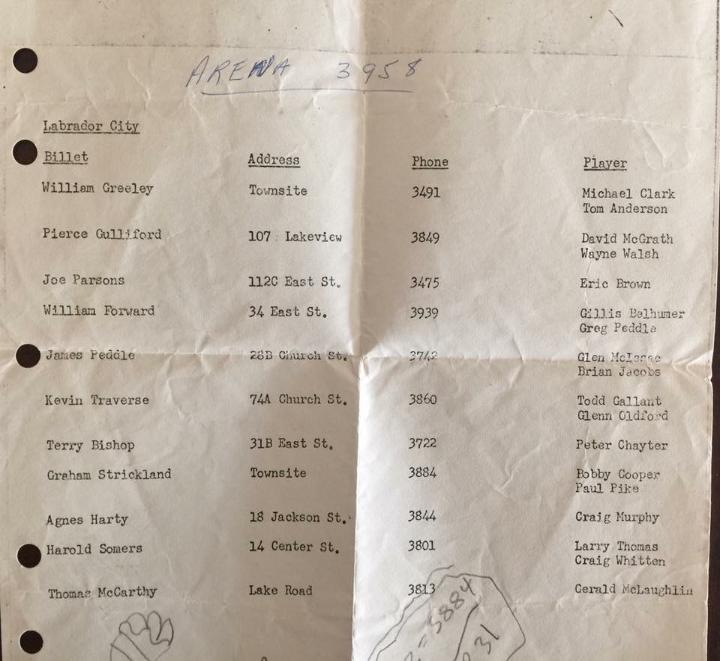 ARENA 3958
Labrador City
Billet Address Phone Player
William Greeley Townsite 3491 Michael Clark
Tom Anderson
Pierce Gulliford 107 Lakeview 3849 David McGrath
Wayne Walsh
Joe Parsons 112C East St. 3475 Eric Brown
William Forward 34 East St. 3939 Gillis Belhumer
Greg Peddle
James Peddle 28B Church St. 3742 Glen McIsaac
Brian Jacobs
Kevin Traverse 74A Church St. 3860 Todd Gallant
Glenn Oldford
Terry Bishop 31B East St. 3722 Peter Chayter
Graham Strickland Townsite 3884 Bobby Cooper
Paul Pike
Agnes Harty 18 Jackson St. 3844 Craig Murphy
Harold Somers 14 Center St. 3801 Larry Thomas
Craig Whitten
Thomas McCarthy Lake Road 3813 Gerald McLaughlin